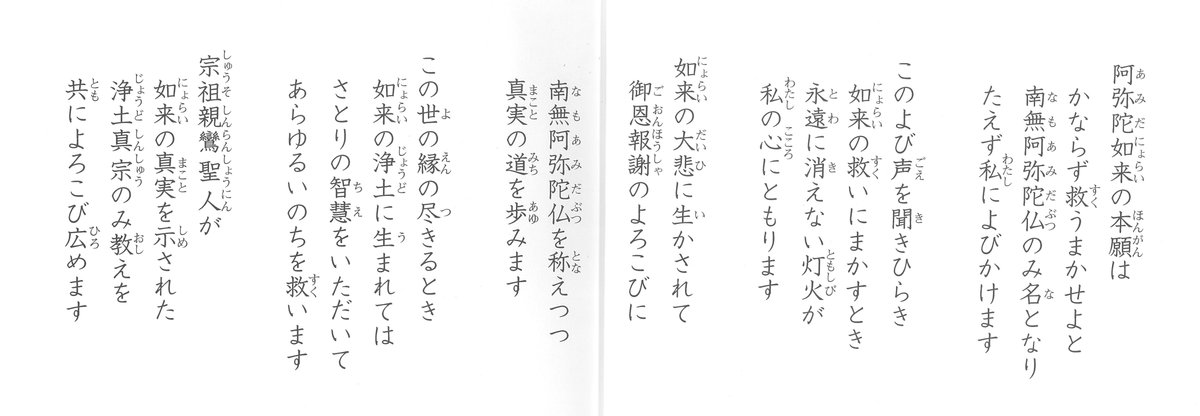 阿弥陀如来の本願は
かならず救うまかせよと
南無阿弥陀仏のみ名となり
たえず私によびかけます
このよび声を聞きひらき
如来の救いにまかすとき
永遠に消えない灯火が
私の心にともります
如来の大悲に生かされて
御恩報謝のよろこびに
南無阿弥陀仏を称えつつ
真実の道を歩みます
この世の縁の尽きるとき
如来の浄土に生まれては
さとりの智慧をいただいて
あらゆるいのちを救います
宗祖親鸞聖人が
如来の真実を示された
浄土真宗のみ教えを
共によろこび広めます